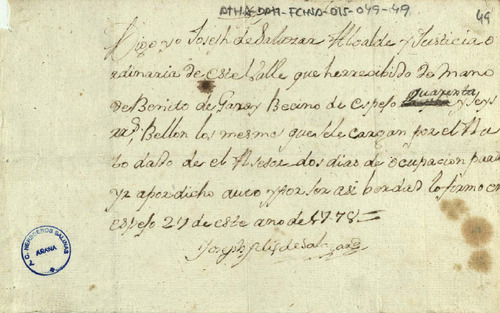 ATHA-DAH-FCINA-015-049-49
49
Digo yo Joseph de Salazar Alcalde y Justicia o
rdinaria de este Valle que he rrecibido de mano
de Benito de Garay Becino de Espejo quarenta y seys
rr.s Bellon los mesmos que se le cargan por el Au
to dado de el Asesor dos dias de ocupacion para
yr a por dicho auto y por ser asi berdad lo firmo en
espejo 27 de este año de 1778
Joseph Felix de Salazar
T.C. HEREDEROS SALINAS
ARANA